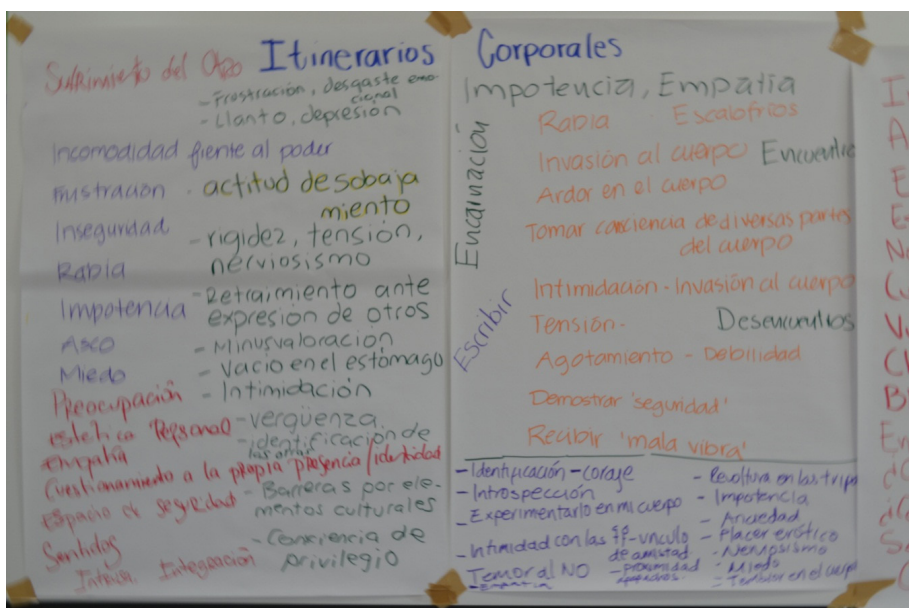 Sufrimiento del Otro
Itinerarios Corporales
- Frostración, desgaste emo-
cional
- Llanto, depresión
Incomodidad frente al poder
Frustración
- actitud de sobaja
miento
Inseguridad
- rigidez, tensión,
nerviosismo
Rabia
Impotencia
- Retraimiento ante
expresion de otros
Asco
- Minusvaloración
Miedo
- Vacio en el estómago
- Intimidación
Preocupación
estetica Personal
- vergüenza
- identificación de
las amas
empatía
Cuestionamiento a la propia presencia/identidad
espacio de seguridad
- Barreras por ele-
mentos culturales
Sentidos
- Conciencia de
privilegio
Intensa. Integración
Impotencia, Empatia
Encarnación
Rabia Escalofrios
Invasión al cuerpo Encuentro
Ardor en el cuerpo
Tomar conciencia de diversas partes
del cuerpo
Escribir
Intimidación - Invasión al cuerpo
Tensión - Desencuentros
Agotamiento - Debilidad
Demostrar 'seguridad'
Recibir 'mala vibra'
- Identificación - coraje
- Introspección
- Experimentarlo en mi cuerpo
- Intimidad con las - vinculo
de amistad
Temor al NO - proximidad
- Revoltura en las tripas
- Impotencia
- Ansiedad
- Placer erótico
- Nerviosismo
- Miedo
- Tensión en el cuerpo